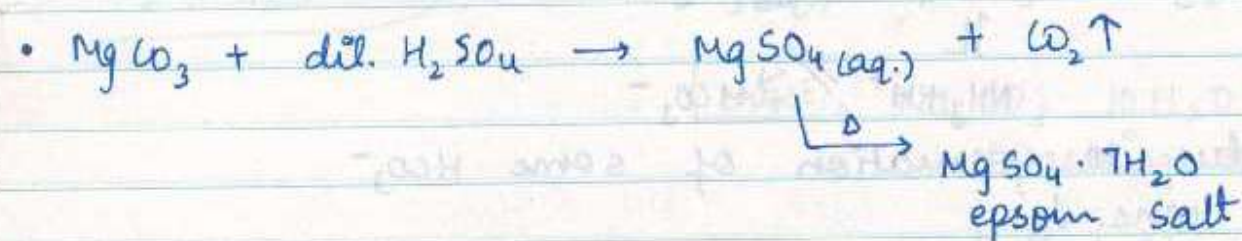 • MgCO₃ + dil. H₂SO₄ → MgSO₄(aq.) + CO₂↑
Δ
MgSO₄·7H₂O
epsom salt